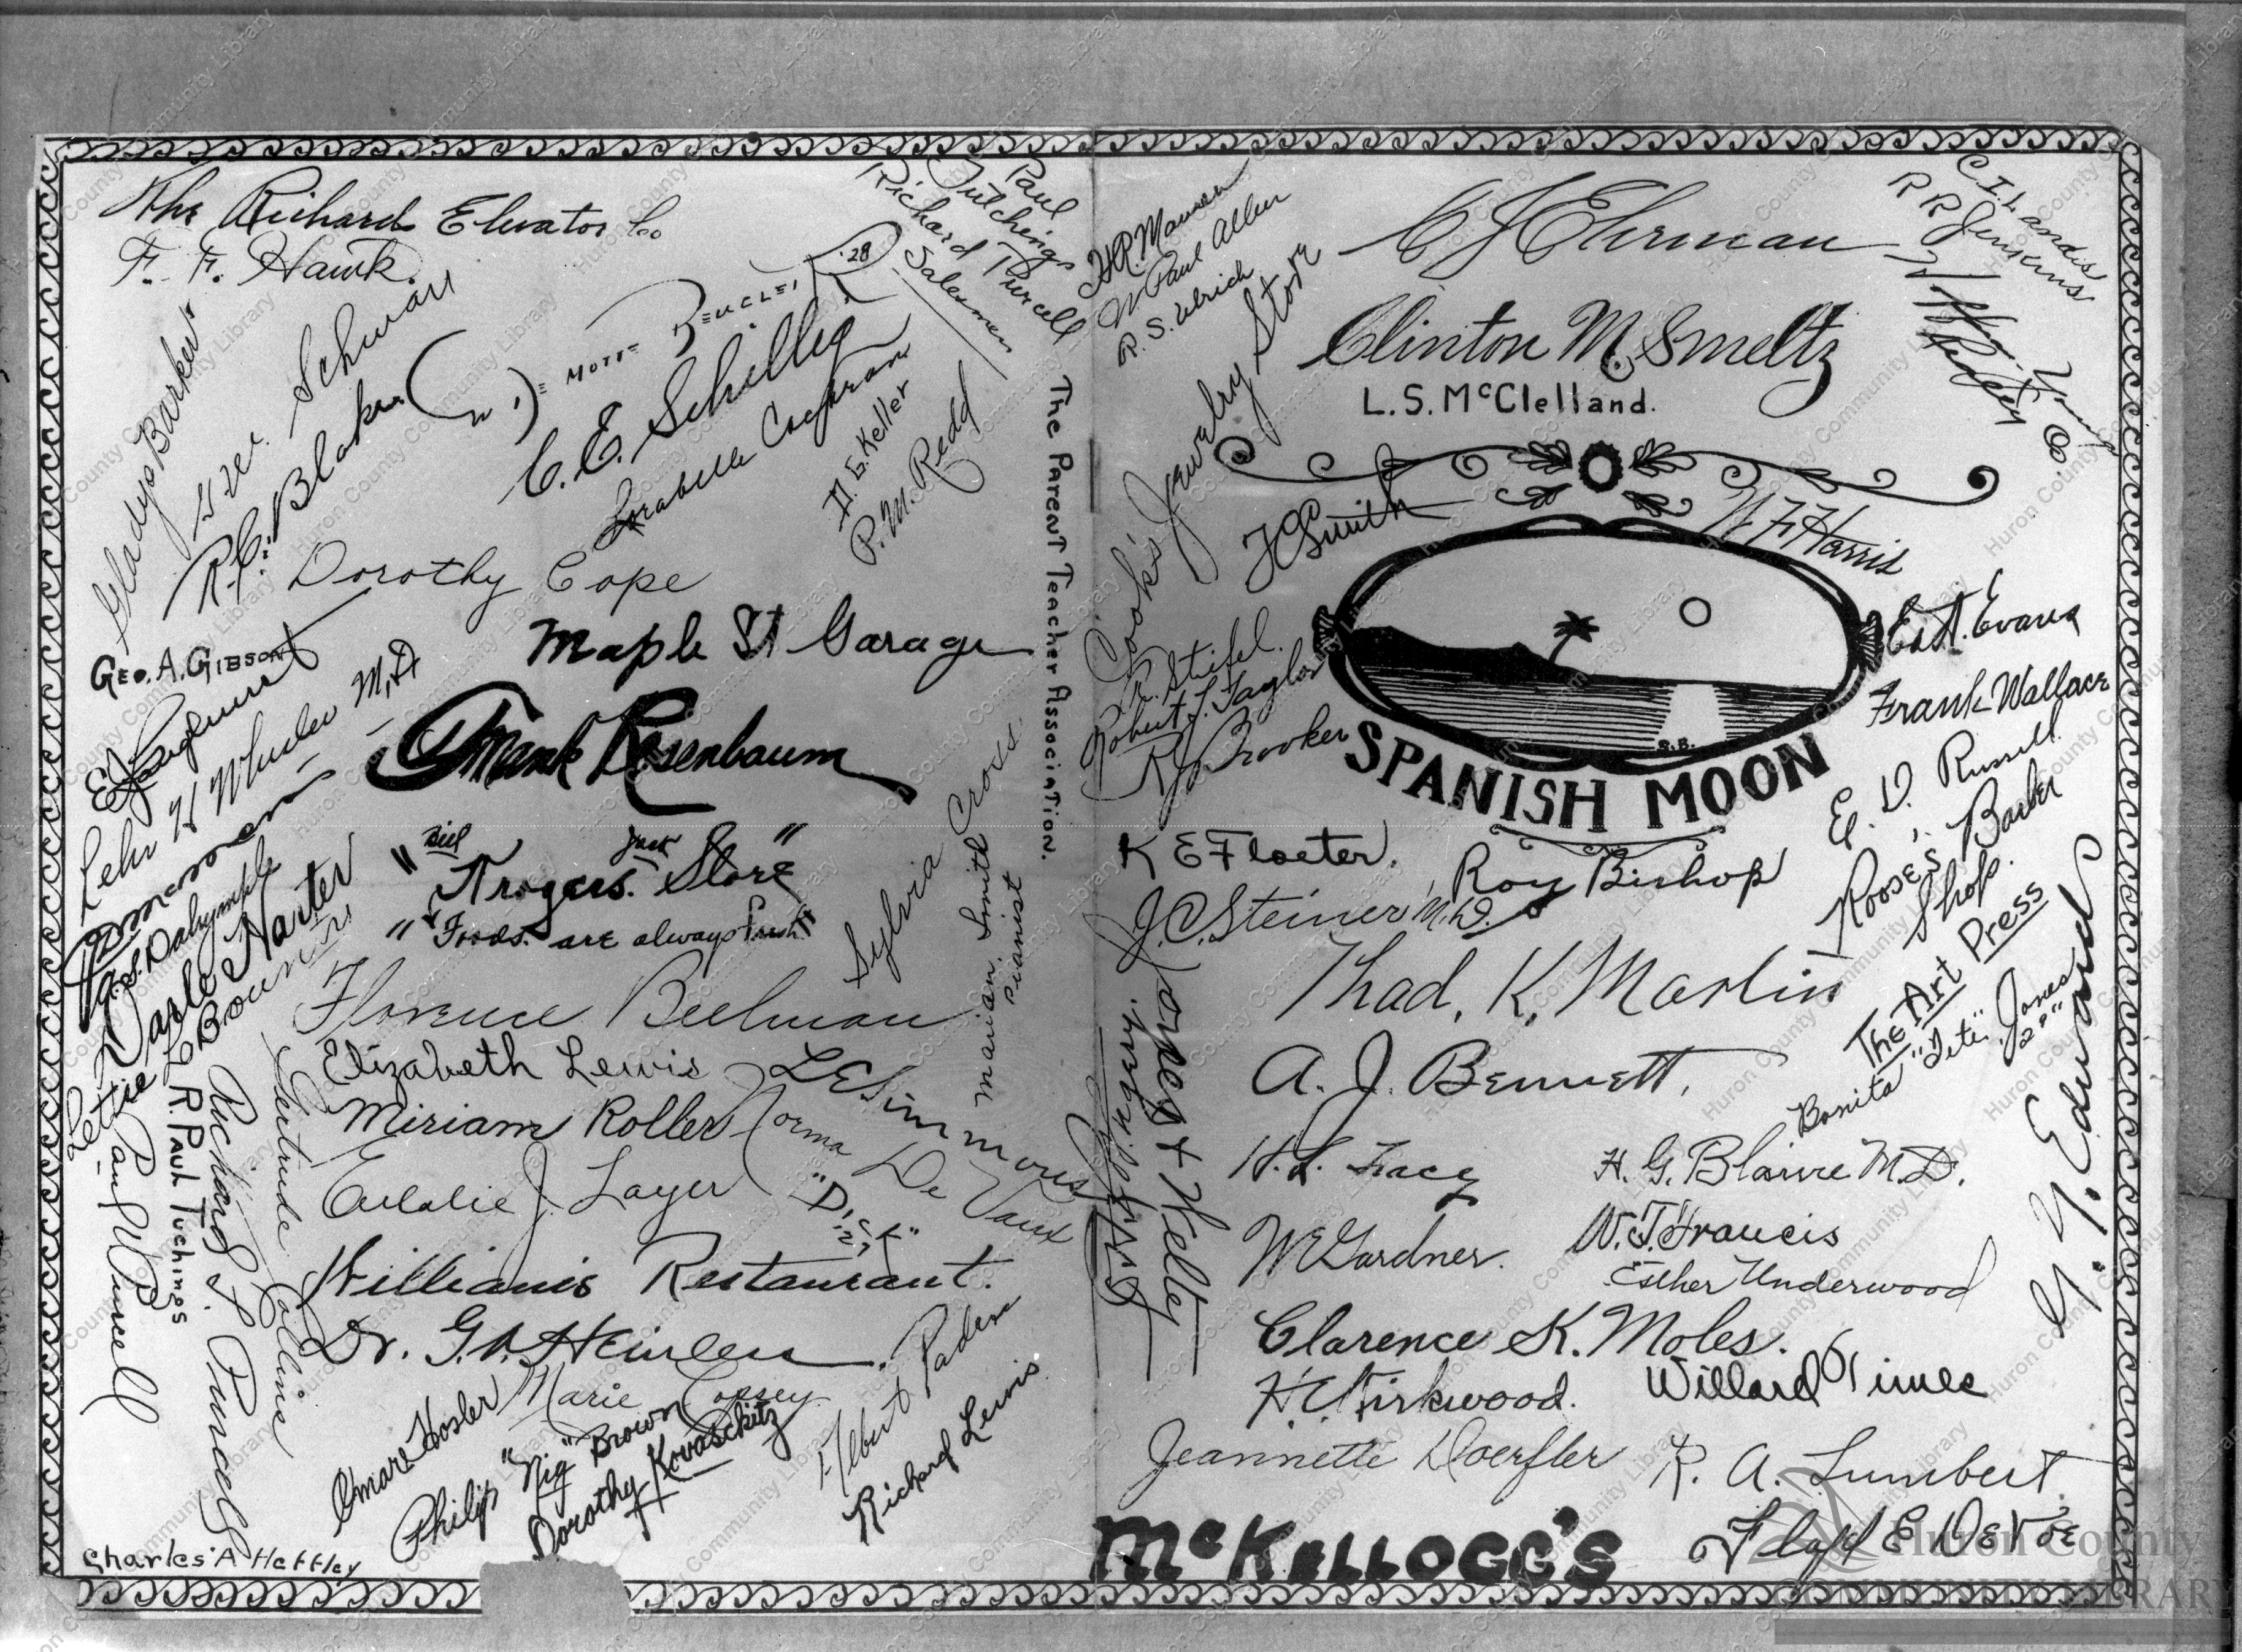 The Richard Elevator Co
F. F. Hawk.
Gladys Barker
G. W. Schwan
R. C. Blaker.
MOTTE BEUCLER '28
C. E. Schillig
Lorabelle Cochran
D. G. Keller
P. M. Redd
Paul
Tutchings
Richard Purcell
Salesmen
Dorothy Cope
GEO. A. GIBSON
Maple St Garage
Lehr H Wheeler M.D
Frank Rosenbaum
"Krogers. Store"
Bill
Jack
"Foods. are always Fresh."
Zimmerman
A. S. Dalrymple
Darle Harter
Lettie L Bowers
Paul Purcell
R. Paul Tuchings
Richard L. Purcell
Gertrude Collins
Sylvia Cross.
Marian Smith
Pianist
Florence Beelman
Elizabeth Lewis
L E Simmons
Miriam Roller
Norma De Vaux
Eulalie J. Layer
"Dick"
'27
Williams Restaurant.
Dr. G. A. Heimlen.
Omare Hosler
Marie Copsey.
Philip "Nig" Brown
Dorothy Kovaschitz
Albert Paden
Richard Lewis
Charles A Heffley
The Parent Teacher Association.
H. P. Maurer
W Paul Allen
R. S. Ulrich
C J Ehrman
C I Landis
R R Jenkins
W. H. Young Co.
Clinton M. Smeltz
L. S. McClelland.
Cook's Jewelry Store
F C Smith
W F Harris
R. Stifel.
Robert L. Taylor
R J Brooker
Ed A. Evans
Frank Wallace
S.B.
SPANISH MOON
E. D. Russell
K E Floeter.
Roy Bishop
Roose's Barber
Shop.
J. C. Steiner M.D.
Thad. K. Martin
The Art Press
Bonita "Tete" Jones
A. J. Bennett.
Y. Y. Edward
Lorpey & Kelley
H. L. Tracy
H. G. Blaine M.D.
W E Gardner.
W. T. Francis
Esther Underwood
Clarence K. Moles.
H. C. Kirkwood.
Willard Times
Jeannette Doerfler
R. A. Lumbert
McKELLOGG'S
Floyd E DeVoe
Huron County
COMMUNITY LIBRARY